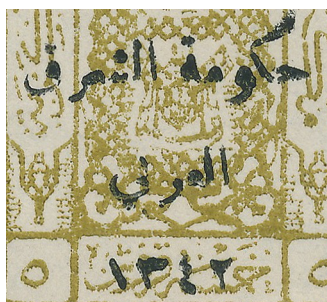 حكومة الشرق
العربي
١٣٤٢